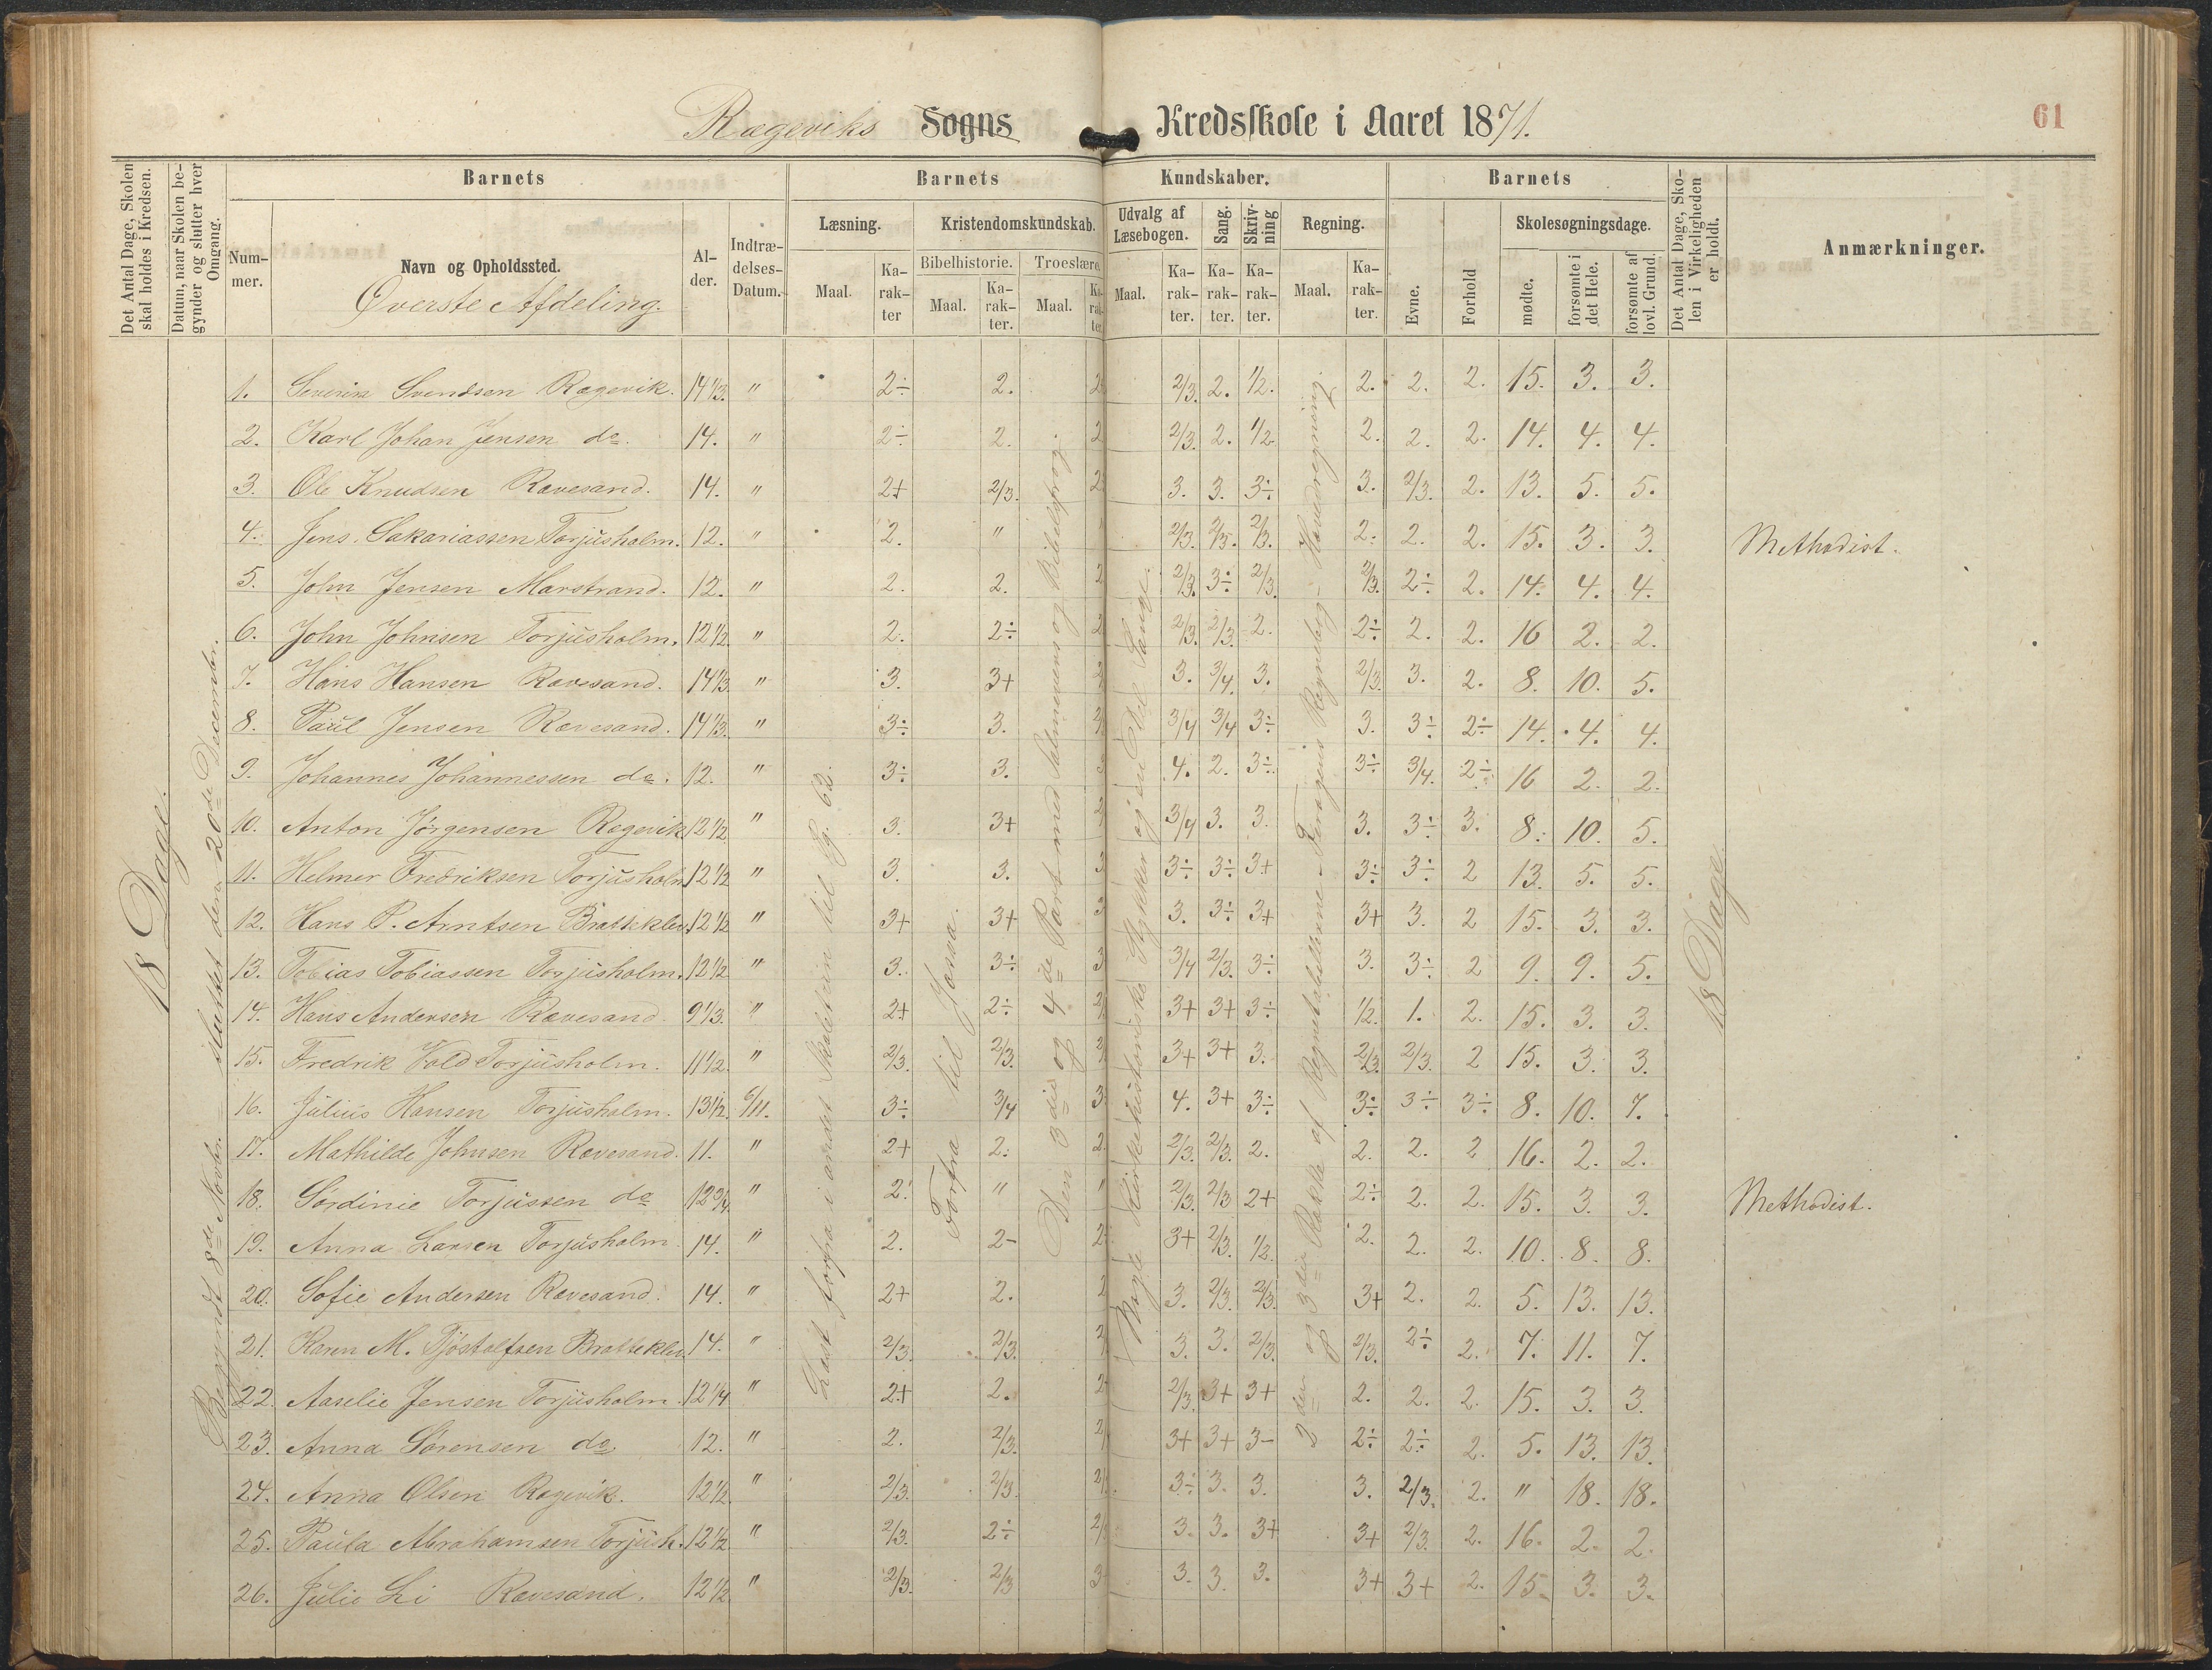 Rægeviks Sogns Kredsskole i Aaret 1871.
61
Det Antal Dage, Skolen skal holdes i Kredsen.
Datum, naar Skolen begynder og slutter hver Omgang.
Barnets
Nummer.
Navn og Opholdssted.
Øverste Afdeling.
Alder.
Indtrædelses-Datum.
Barnets Kundskaber.
Læsning.
Maal. Karakter
Kristendomskundskab.
Bibelhistorie. Troeslære.
Maal. Karakter. Maal. Karakter.
Udvalg af Læsebogen.
Maal. Karakter.
Sang. Karakter.
Skrivning Karakter.
Regning.
Maal. Karakter.
Barnets
Evne. Forhold
Skolesøgningsdage.
mødte. forsømte i det Hele. forsømte af lovl. Grund.
Det Antal Dage, Skolen i Virkeligheden er holdt.
Anmærkninger.
18 Dage.
Begyndt 8de Novbr. sluttet den 20de December.
Læst forfra i andet Skoletrin til Pg. 62.
Forfra til Josva.
Den 3die og 4de Part med Salmevers og Bibelsprog.
Nogle kirkehistoriske Stykker og en Del Sange.
2den og 3die Række af Regnetabellerne. Hovedregning.
18 Dage.
1. Severin Svendsen Rægevik. 14 1/3. " 2÷ 2. 2/3. 2. 1/2. 2. 2. 2. 15. 3. 3.
2. Karl Johan Jensen do. 14. " 2÷ 2. 2 2/3. 2. 1/2. 2. 2. 2. 14. 4. 4.
3. Ole Knudsen Rævesand. 14. " 2+ 2/3. 3. 3. 3÷ 3. 2/3. 2. 13. 5. 5.
4. Jens Sakariassen Torjusholm. 12. " 2. " 2/3. 2/3. 2/3. 2. 2. 2. 15. 3. 3. Methodist.
5. John Jensen Marstrand. 12. " 2. 2. 2 2/3. 3÷ 2/3. 2/3. 2÷ 2. 14. 4. 4.
6. John Johnsen Torjusholm. 12 1/2. " 2. 2÷ 2/3. 2/3. 2. 2÷ 2. 2. 16 2. 2.
7. Hans Hansen Rævesand. 14 1/3. " 3. 3+ 3. 3/4. 3. 2/3. 3. 2. 8. 10. 5.
8. Paul Jensen Rævesand. 14 1/3. " 3÷ 3. 3/4 3/4 3÷ 3. 3÷ 2÷ 14. 4. 4.
9. Johannes Johannessen do. 12. " 3÷ 3. 3 4. 2. 3÷ 3÷ 3/4. 2÷ 16 2. 2.
10. Anton Jørgensen Rægevik 12 1/2. " 3. 3+ 3/4 3. 3. 3. 3÷ 3. 8. 10. 5.
11. Helmer Fredriksen Torjusholm 12 1/2 " 3. 3. 3 3÷ 3÷ 3+ 3÷ 3÷ 2 13. 5. 5.
12. Hans P. Arntsen Bratteklev. 12 1/2 " 3+ 3+ 3 3. 3÷ 3+ 3+ 3. 2 15. 3. 3.
13. Tobias Tobiassen Torjusholm. 12 1/2 " 3. 3÷ 3 3/4 2/3. 3÷ 3. 3÷ 2 9. 9. 5.
14. Hans Andersen Rævesand. 9 1/3. " 2+ 2÷ 3+ 3+ 3÷ 1/2. 1. 2. 15. 3. 3.
15. Fredrik Vold Torjusholm. 11 1/2. " 2/3. 2/3. 3+ 3+ 3. 2/3. 2/3. 2 15. 3. 3.
16. Julius Hansen Torjusholm. 13 1/2. 6/11. 3÷ 3/4 3 4. 3+ 3÷ 3÷ 3÷ 3÷ 8. 10. 7.
17. Mathilde Johnsen Rævesand. 11. " 2+ 2. 2. 2/3. 2/3. 2. 2. 2. 2 16. 2. 2.
18. Sørdinie Torjussen do 12 3/4. " 2. " " 2/3. 2/3 2+ 2÷ 2. 2. 15. 3. 3. Methodist.
19. Anna Larsen Torjusholm. 14. " 2. 2- 3+ 2/3. 1/2. 2. 2. 2. 10. 8. 8.
20. Sofie Andersen Rævesand. 14. " 2+ 2. 3. 2/3. 2/3. 3+ 2. 2. 5. 13. 13.
21. Karen M. Tjøstolfsen Bratteklev. 14. " 2/3. 2/3. 3. 3. 2/3. 2/3. 2÷ 2. 7. 11. 7.
22. Aaselie Jensen Torjusholm. 12 1/4 " 2+ 2. 2/3. 3+ 3+ 2. 2. 2. 15. 3. 3.
23. Anna Sørensen do. 12. " 2. 2/3. 3+ 3+ 3- 2÷ 2÷ 2. 5. 13. 13.
24. Anna Olsen Rægevik. 12 1/2. " 2/3. 2/3. 3÷ 3. 3. 3. 2/3. 2. " 18. 18.
25. Paula Abrahamsen Torjush. 12 1/2. " 2/3. 2÷ 3. 3. 3+ 3+ 2/3. 2. 16. 2. 2.
26. Julie Li Rævesand. 12 1/2. " 2/3. 2/3 3. 3. 3. 3+ 3+ 2. 15. 3. 3.